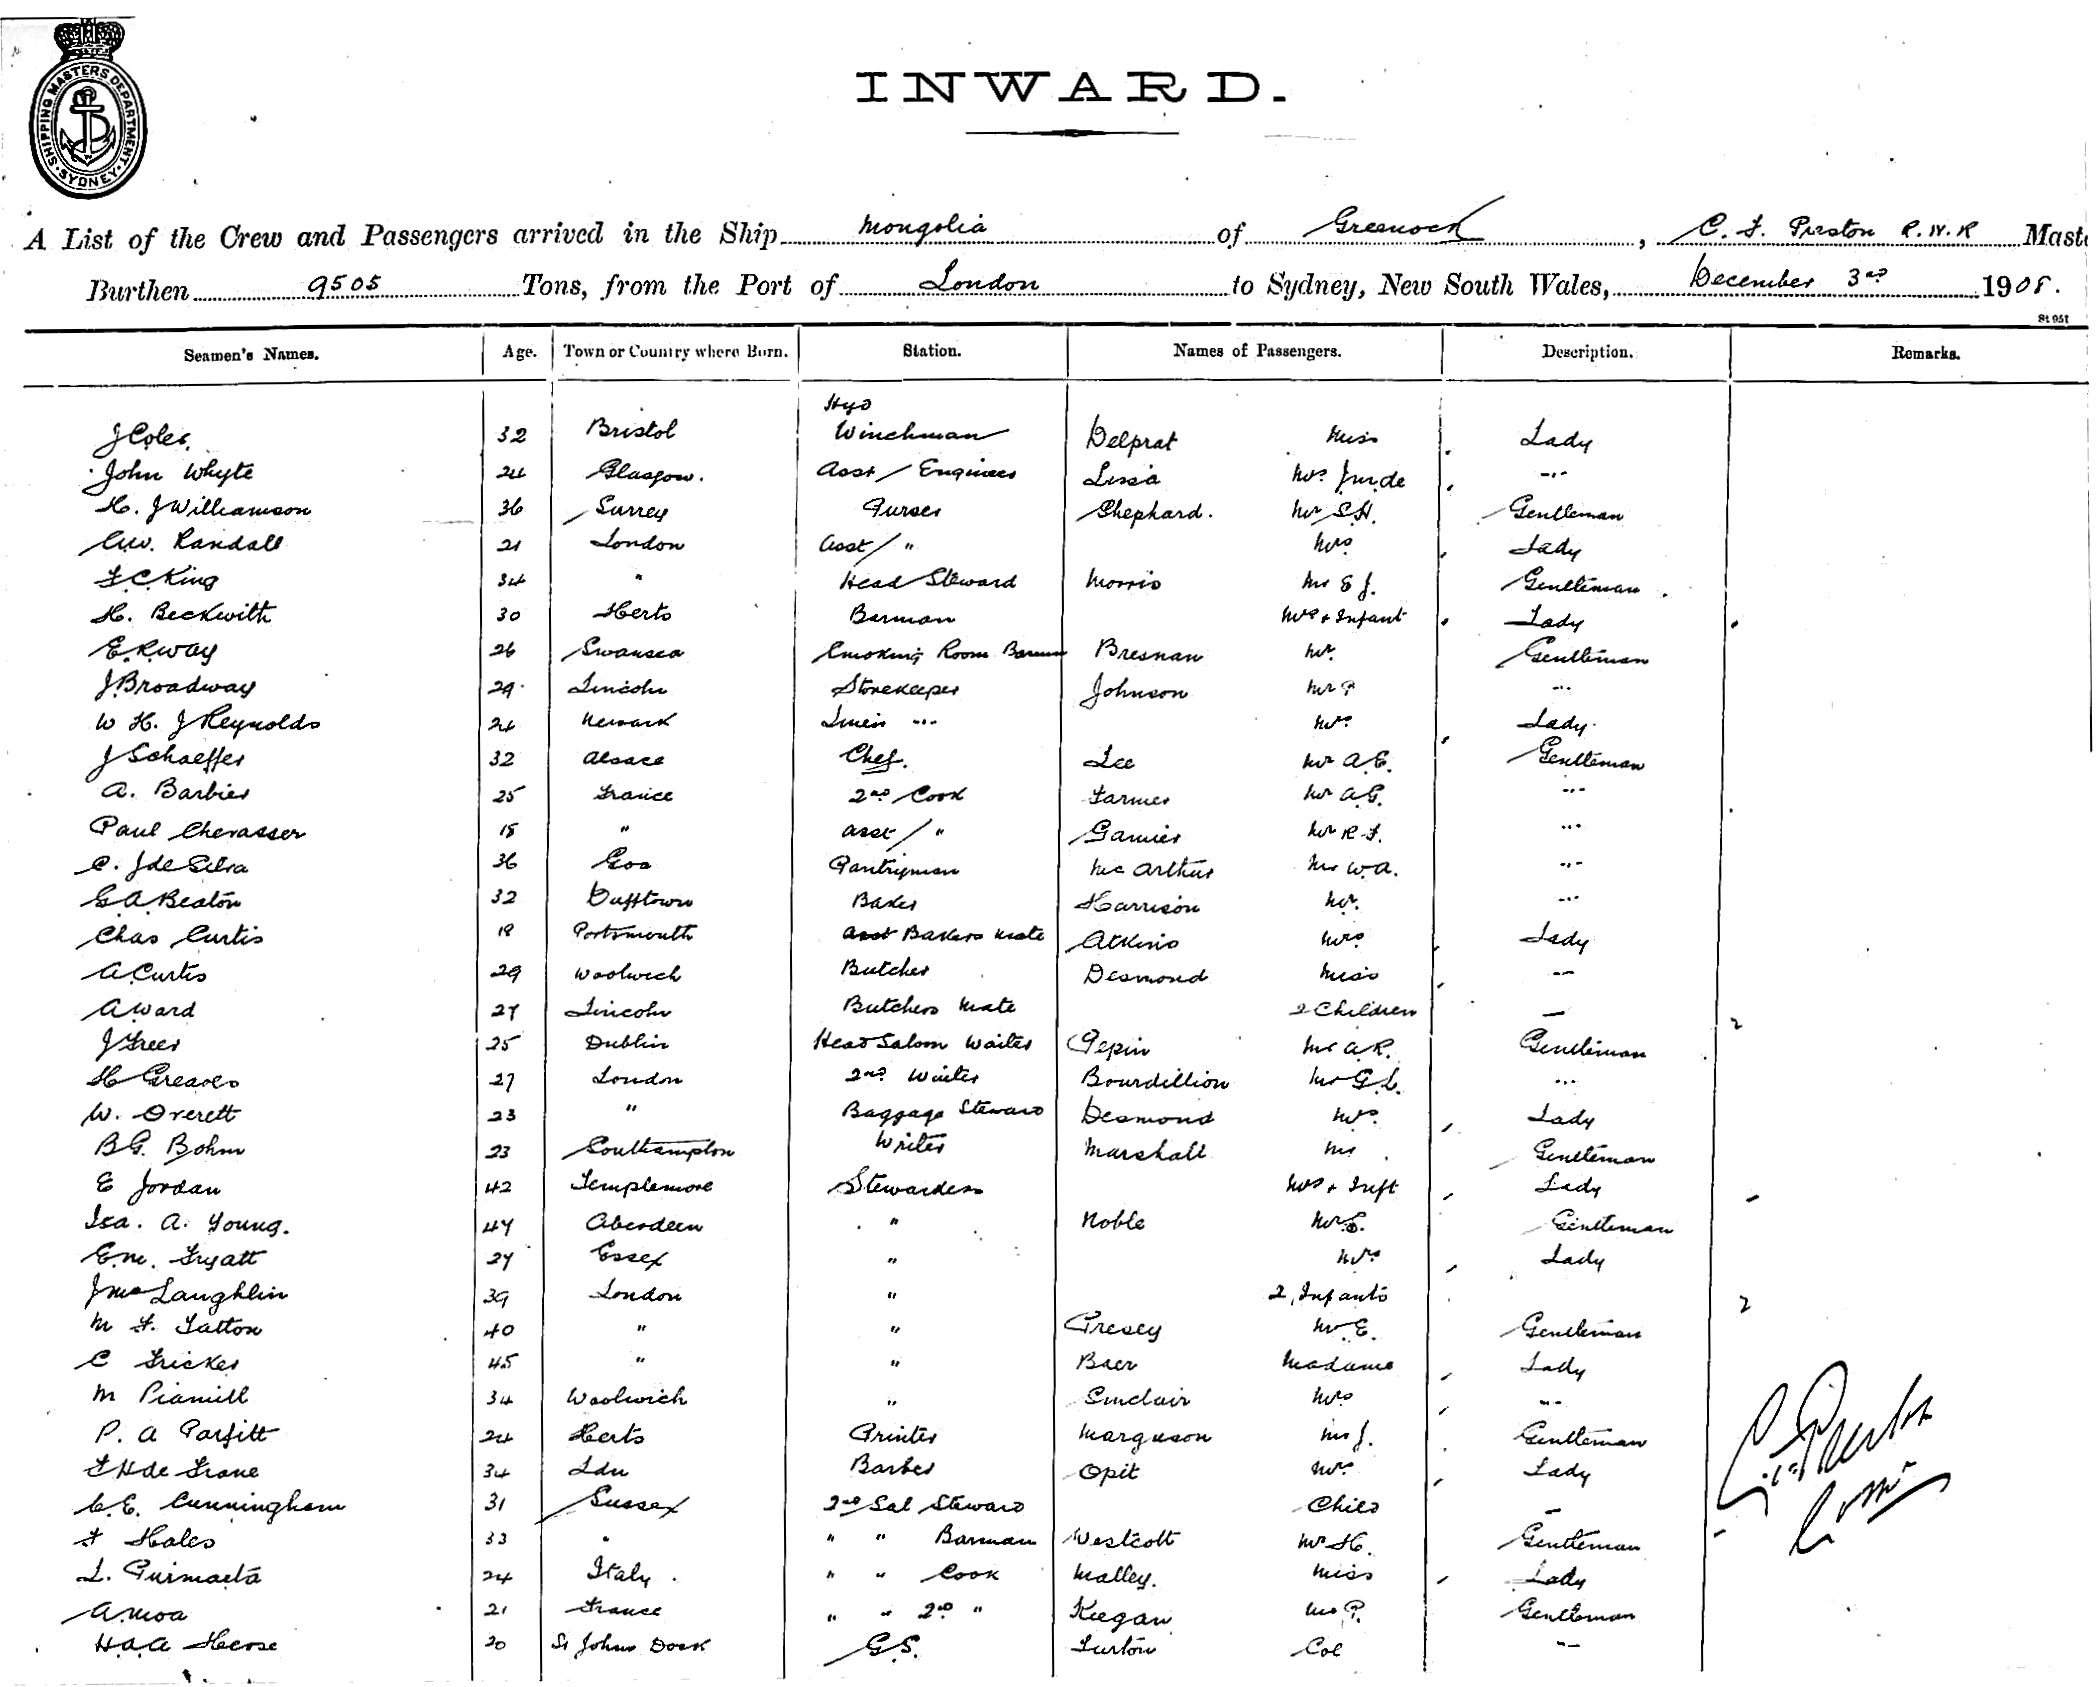 SHIPPING MASTERS DEPARTMENT · SYDNEY ·
INWARD.
A List of the Crew and Passengers arrived in the Ship Mongolia of Greenock, C. F. Preston R.N.R Maste
Burthen 9505 Tons, from the Port of London to Sydney, New South Wales, December 3rd 1908.
St 951
Seamen's Names. Age. Town or Country where Born. Station. Names of Passengers. Description. Remarks.
Hyd
J Coles 32 Bristol Winchman Delprat Miss Lady
John Whyte 24 Glasgow. Asst / Engineer Mrs Lady
H. J Williamson 36 Surrey Purser Shephard. Mr S.H. Gentleman
C.W. Randall 21 London Asst / " Mrs Lady
F C King 34 " Head Steward Morris Mr E J. Gentleman
H. Beckwith 30 Herts Barman Mrs + Infant Lady
E. R. Way 26 Swansea Smoking Room Barman Bresnan Mr. Gentleman
J. Broadway 29 Lincoln Storekeeper Johnson Mr P -"-
W H. J Reynolds 24 Newark Linen -"- Mrs Lady
J Schaeffer 32 Alsace Chef. Lee Mr A.E. Gentleman
A. Barbier 25 France 2nd Cook Farmer Mr A.G. -"-
Paul Chevasser 18 " Asst / " Garnier Mr R.F. -"-
C. J de Silva 36 Goa Pantryman McArthur Mr W.A. -"-
G. A. Beaton 32 Dufftown Baker Harrison Mr. -"-
Chas Curtis 18 Portsmouth Asst Bakers Mate Atkins Mrs Lady
A. Curtis 29 Woolwich Butcher Desmond Miss -"-
A Ward 27 Lincoln Butchers Mate 2 Children - 2
J Greer 25 Dublin Head Saloon Waiter Pepin Mr A.R. Gentleman
H Greaves 27 London 2nd Waiter Bourdillion Mr G.L. -"-
W. Overett 23 " Baggage Steward Desmond Mrs. Lady
B G. Bohm 23 Southampton Writer Marshall Mr Gentleman
E Jordan 42 Templemore Stewardess Mrs + Inft Lady -
Isa. A. Young. 47 Aberdeen " Noble Mr E. Gentleman
E. M. Fryatt 27 Essex " Mrs Lady
J McLaughlin 39 London " 2 Infants 2
M F. Tatton 40 " " Presey Mr E. Gentleman
C Fricker 45 " " Baer Madame Lady
M 34 Woolwich " Sinclair Mrs -"-
P. A Parfitt 24 Herts Printer Marguson Mr J. Gentleman
F H de Frane 34 Ldn Barber Opit Mrs Lady
C. E. Cunningham 31 Sussex 2nd Sal Steward Child - -
F Hales 33 " " " Barman Westcott Mr H. Gentleman
L. 24 Italy. " " Cook Malley. Miss Lady
A. Moa 21 France " " 2nd " Keegan Mr P. Gentleman
H. d. A 20 St Johns Dock G.S. Turton Col -"-
C. F. Preston